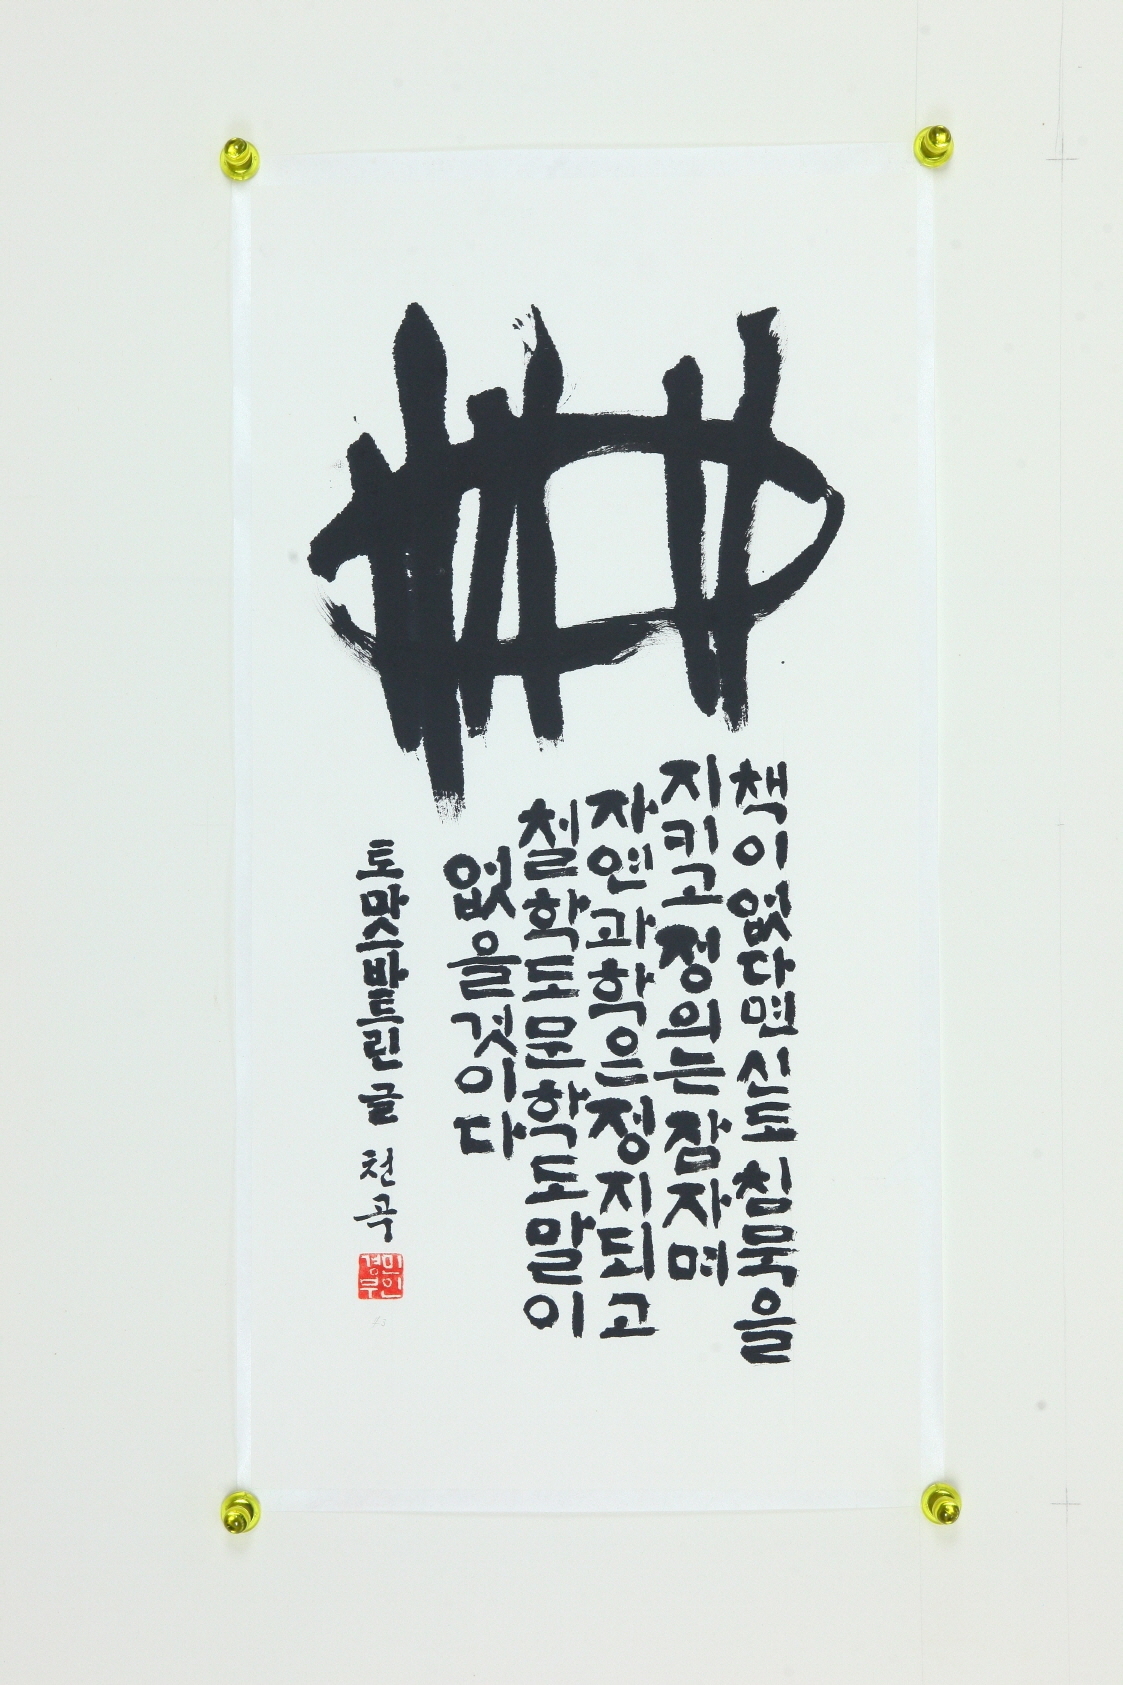 책이없다면신도침묵을
지키고정의는잠자며
자연과학은정지되고
철학도문학도말이
없을것이다
토마스바트린글 천곡